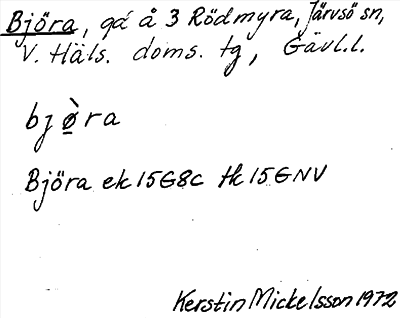 Björa, gd å 3 Rödmyra, Järvsö sn,
V. Häls. doms. tg, Gävl.l.
bjø̱̀ra
Björa ek 15G8c tk 15GNV
Kerstin Mickelsson 1972